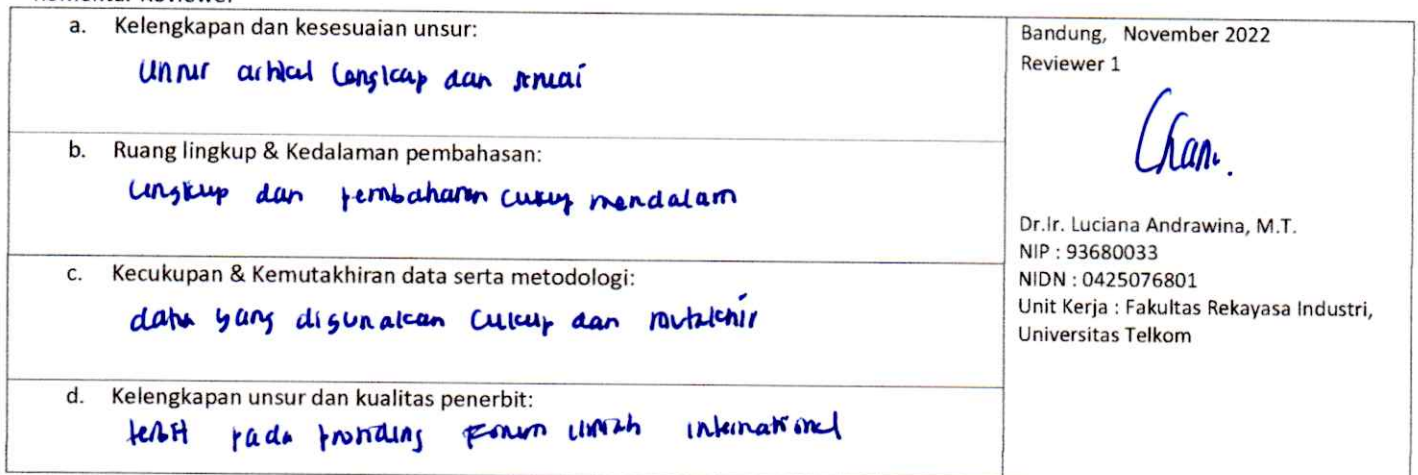 Komentar Reviewer
a. Kelengkapan dan kesesuaian unsur:
Unsur artikel lengkap dan sesuai
b. Ruang lingkup & Kedalaman pembahasan:
Lingkup dan pembahasan cukup mendalam
c. Kecukupan & Kemutakhiran data serta metodologi:
data yang digunakan cukup dan mutakhir
d. Kelengkapan unsur dan kualitas penerbit:
terbit pada prosiding forum ilmiah international
Bandung, November 2022
Reviewer 1
Dr.Ir. Luciana Andrawina, M.T.
NIP : 93680033
NIDN : 0425076801
Unit Kerja : Fakultas Rekayasa Industri,
Universitas Telkom